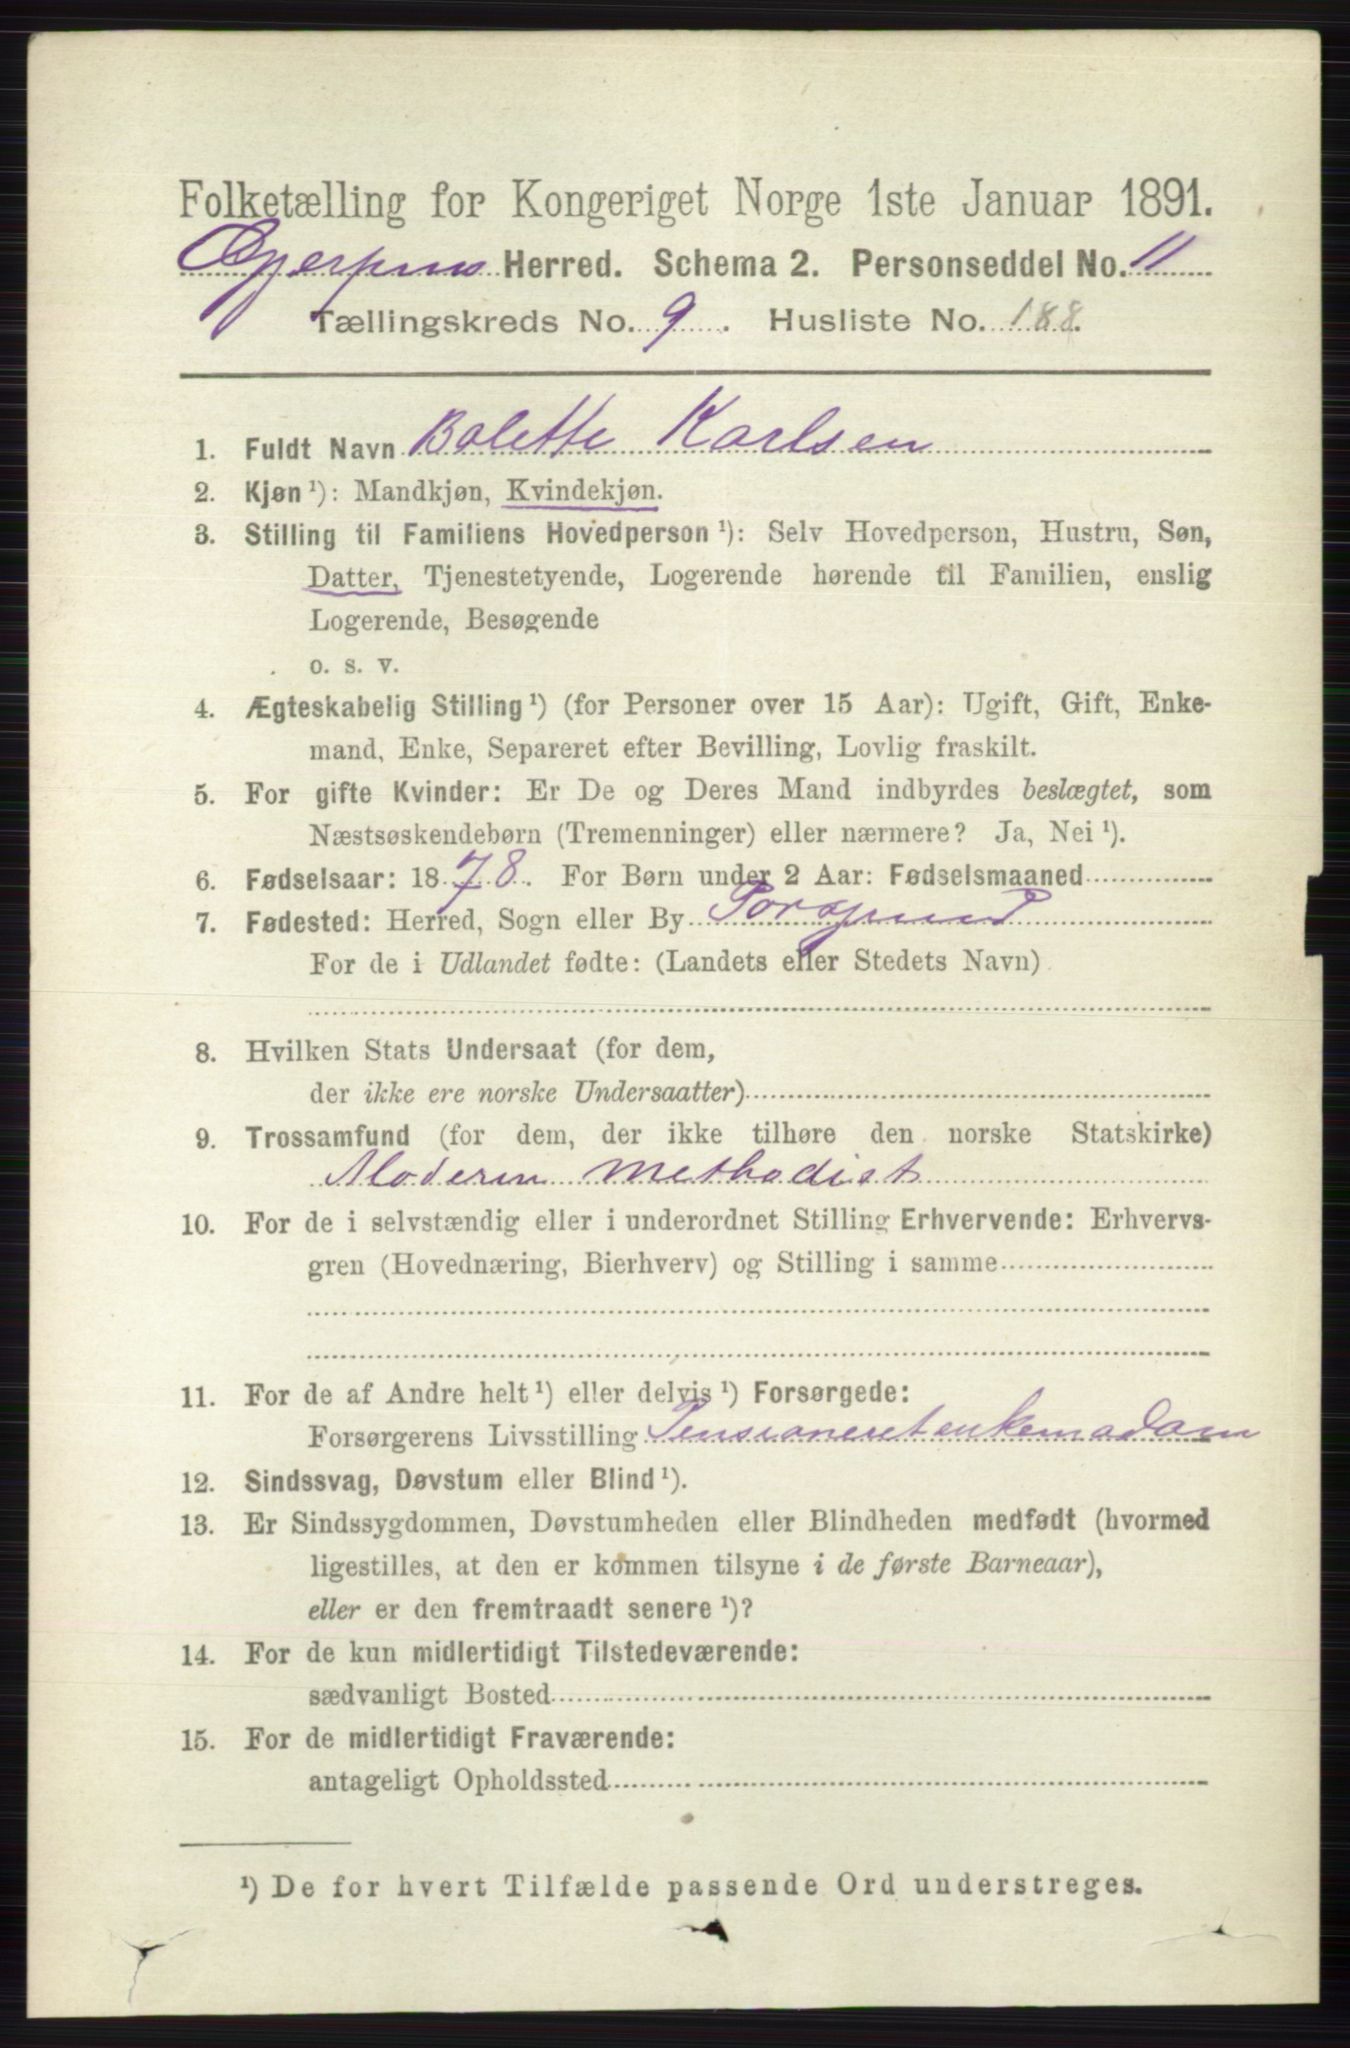 Folketælling for Kongeriget Norge 1ste Januar 1891.
Gjerpens Herred. Schema 2. Personseddel No. 11
Tællingskreds No. 9. Husliste No. 188.
1. Fuldt Navn Bolette Karlsen
2. Kjøn ¹): Mandkjøn, Kvindekjøn.
3. Stilling til Familiens Hovedperson ¹): Selv Hovedperson, Hustru, Søn,
Datter, Tjenestetyende, Logerende hørende til Familien, enslig
Logerende, Besøgende
o. s. v.
4. Ægteskabelig Stilling ¹) (for Personer over 15 Aar): Ugift, Gift, Enke-
mand, Enke, Separeret efter Bevilling, Lovlig fraskilt.
5. For gifte Kvinder: Er De og Deres Mand indbyrdes beslægtet, som
Næstsøskendebørn (Tremenninger) eller nærmere? Ja, Nei ¹).
6. Fødselsaar: 1878. For Børn under 2 Aar: Fødselsmaaned
7. Fødested: Herred, Sogn eller By Porsgrund
For de i Udlandet fødte: (Landets eller Stedets Navn)
8. Hvilken Stats Undersaat (for dem,
der ikke ere norske Undersaatter)
9. Trossamfund (for dem, der ikke tilhøre den norske Statskirke)
Moderen Methodist
10. For de i selvstændig eller i underordnet Stilling Erhvervende: Erhvervs-
gren (Hovednæring, Bierhverv) og Stilling i samme
11. For de af Andre helt ¹) eller delvis ¹) Forsørgede:
Forsørgerens Livsstilling Pensioneret enkemadam
12. Sindssvag, Døvstum eller Blind ¹).
13. Er Sindssygdommen, Døvstumheden eller Blindheden medfødt (hvormed
ligestilles, at den er kommen tilsyne i de første Barneaar),
eller er den fremtraadt senere ¹)?
14. For de kun midlertidigt Tilstedeværende:
sædvanligt Bosted
15. For de midlertidigt Fraværende:
antageligt Opholdssted
¹) De for hvert Tilfælde passende Ord understreges.